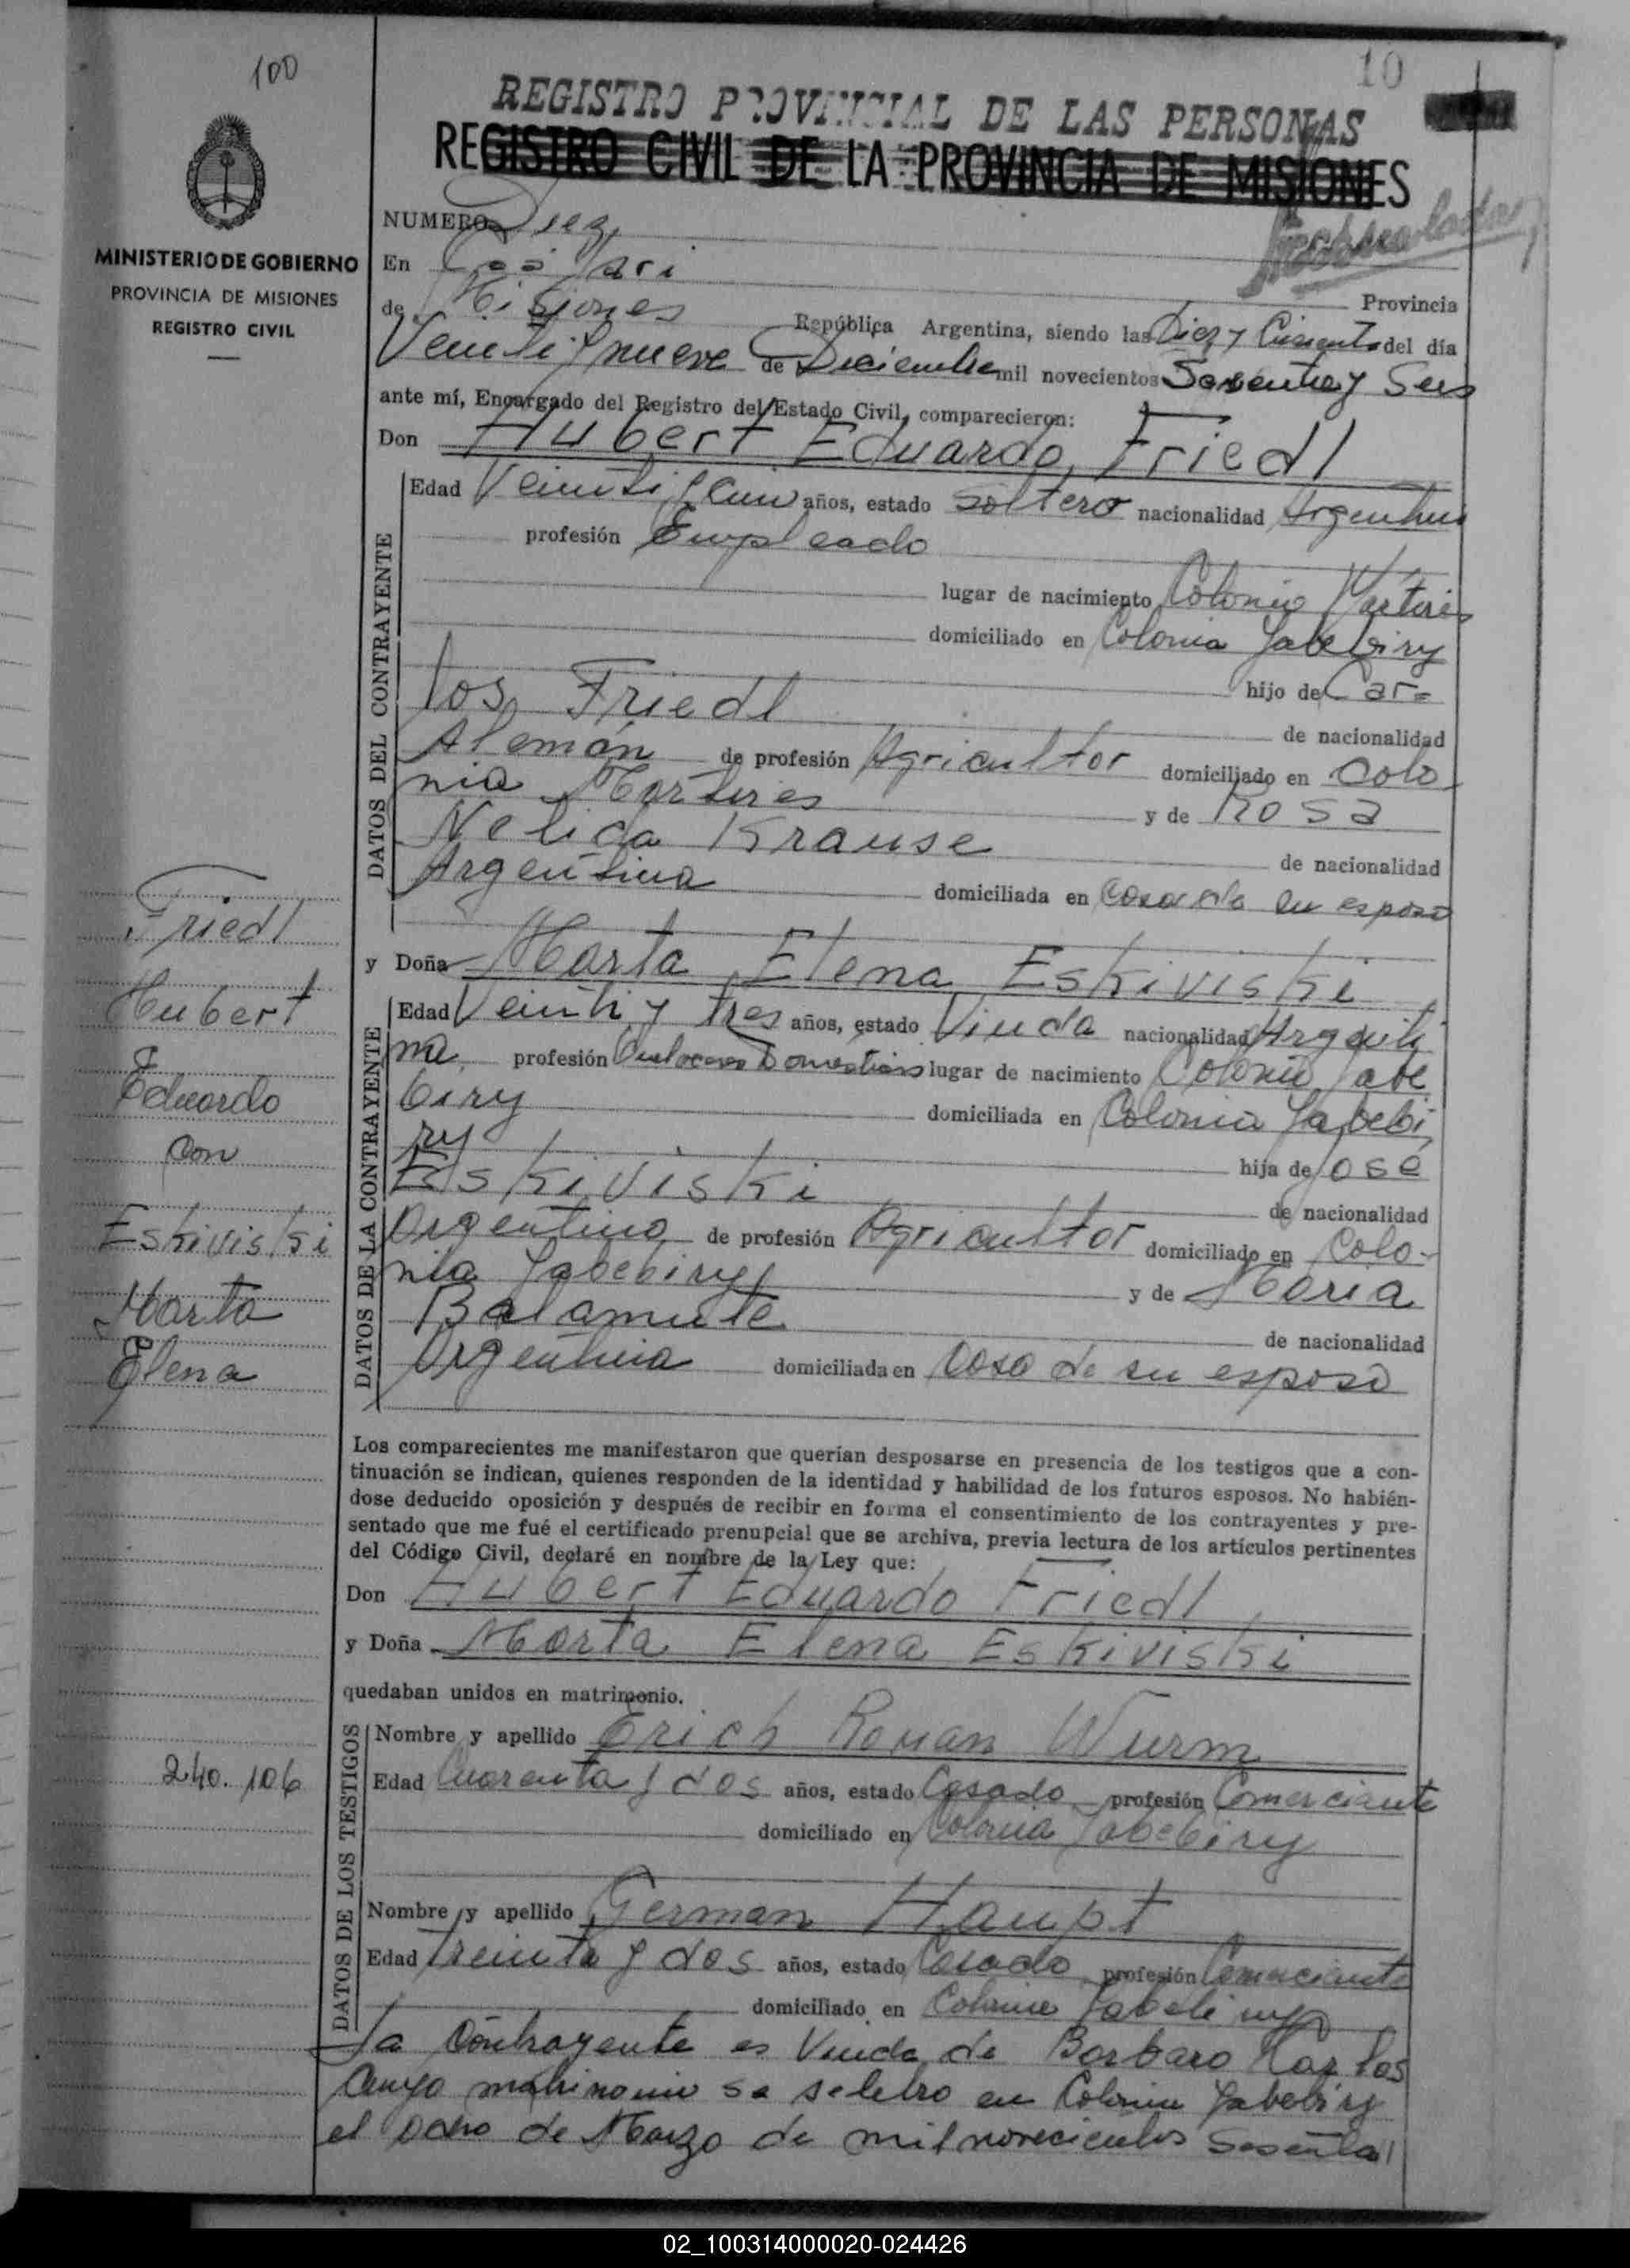 100
10
REGISTRO PROVINCIAL DE LAS PERSONAS
REGISTRO CIVIL DE LA PROVINCIA DE MISIONES
MINISTERIO DE GOBIERNO
PROVINCIA DE MISIONES
REGISTRO CIVIL
NUMERO Diez
En Caá Yari
Provincia
de Misiones República Argentina, siendo las Diez y Cincuenta del día
Veinti y nueve de Diciembre mil novecientos Sesenta y Seis
ante mí, Encargado del Registro del Estado Civil, comparecieron:
Don Hubert Eduardo Friedl
DATOS DEL CONTRAYENTE
Edad Veinti y años, estado Soltero nacionalidad Argentino
profesión Empleado
lugar de nacimiento Colonia Mártires
domiciliado en Colonia Yabebiry
hijo de Car=
los Friedl
de nacionalidad
Alemán de profesión Agricultor domiciliado en Colo
nia Martires y de Rosa
Nelida Krause
de nacionalidad
Argentina domiciliada en Casa de su esposo
y Doña Marta Elena Eskiviski
DATOS DE LA CONTRAYENTE
Edad Veinti y tres años, estado Viuda nacionalidad Argenti
na profesión Domesticos lugar de nacimiento Colonia Yabe
biry domiciliada en Colonia Yabebi
ry
hija de José
Eskiviski
de nacionalidad
Argentino de profesión Agricultor domiciliado en Colo-
nia Yabebiry y de Maria
Balamute
de nacionalidad
Argentina domiciliada en Casa de su esposo
Friedl
Hubert
Eduardo
con
Eskiviski
Marta
Elena
Los comparecientes me manifestaron que querían desposarse en presencia de los testigos que a con-
tinuación se indican, quienes responden de la identidad y habilidad de los futuros esposos. No habién-
dose deducido oposición y después de recibir en forma el consentimiento de los contrayentes y pre-
sentado que me fué el certificado prenupcial que se archiva, previa lectura de los artículos pertinentes
del Código Civil, declaré en nombre de la Ley que:
Don Hubert Eduardo Friedl
y Doña Marta Elena Eskiviski
quedaban unidos en matrimonio.
DATOS DE LOS TESTIGOS
Nombre y apellido Erich Roman Wurm
Edad Cuarenta y dos años, estado Casado profesión Comerciante
domiciliado en Colonia Yabebiry
240.106
Nombre y apellido German Haupt
Edad Treinta y dos años, estado Casado profesión Comerciante
domiciliado en Colonia Yabebiry
La Contrayente es Viuda de Barbaro Carlos
Cuyo matrimonio se selebro en Colonia Yabebiry
el ocho de Marzo de mil novecientos Sesenta
02_100314000020-024426